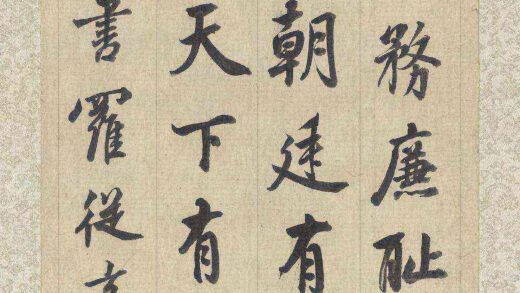 務廉耻
朝廷有
天下有
書羅從